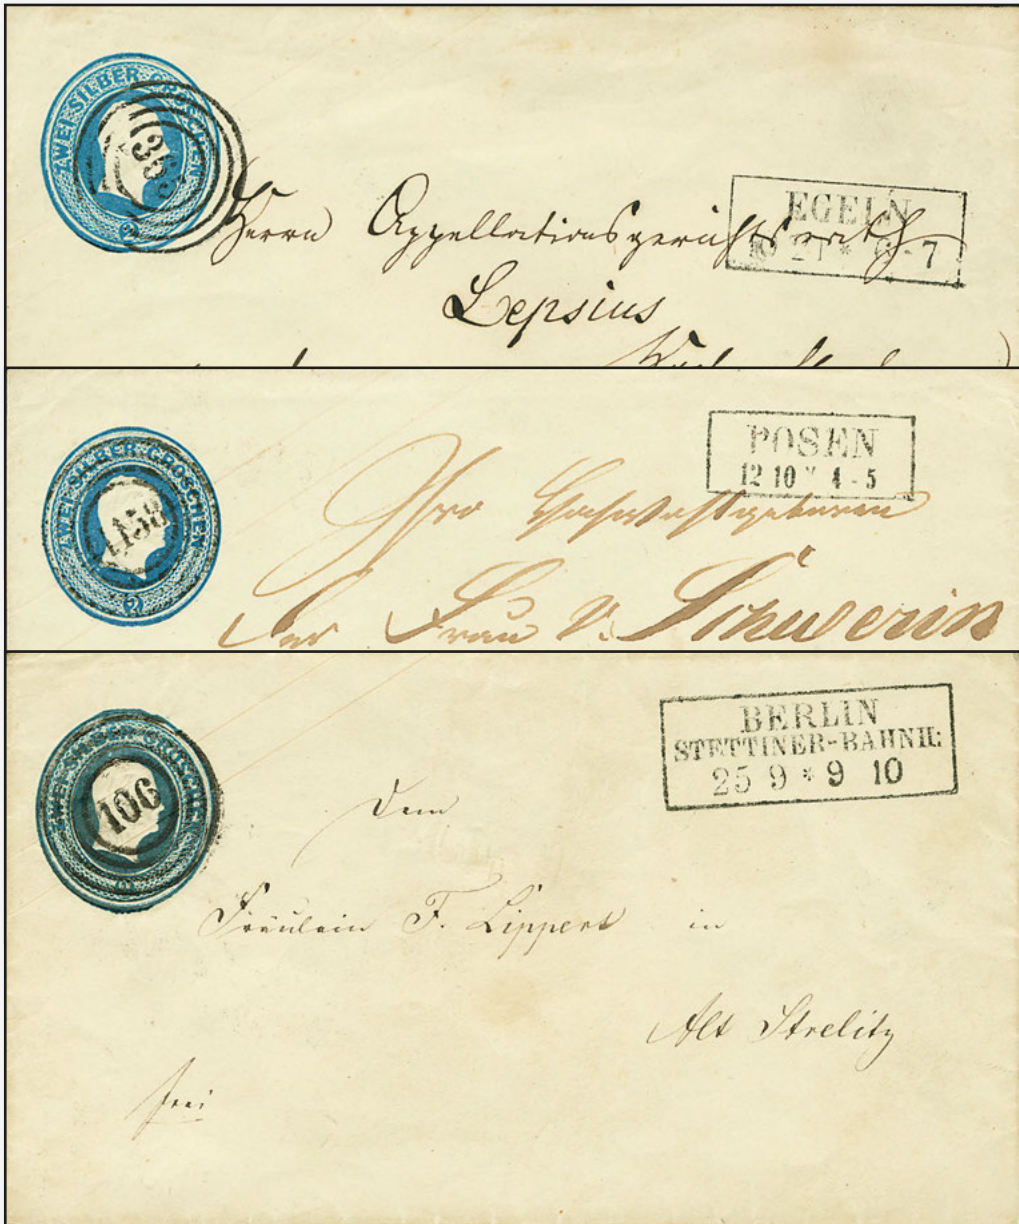 ZWEI SILBER-GROSCHEN
2
EGELN
6-7
Herrn Appellationsgerichtsrath
Lepsius
ZWEI SILBER-GROSCHEN
2
158
POSEN
12 10 * 4-5
Der Frau v. Schwerin
ZWEI SILBER GROSCHEN
106
BERLIN
STETTINER-BAHNH:
25 9 * 9 10
Dem
Fräulein F. Lippert in
Alt Strelitz
frei